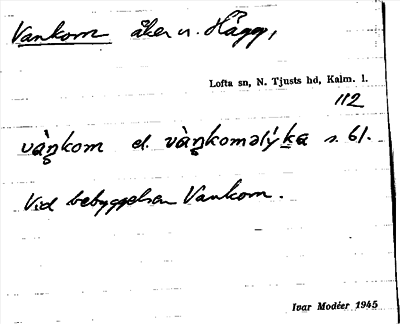 Vankom åker u. Hägg,
Lofta sn, N. Tjusts hd, Kalm. l.
112
vàŋkom el. vàŋkoməlýka s. 61.
Vid bebyggelsen Vankom.
Ivar Modéer 1945